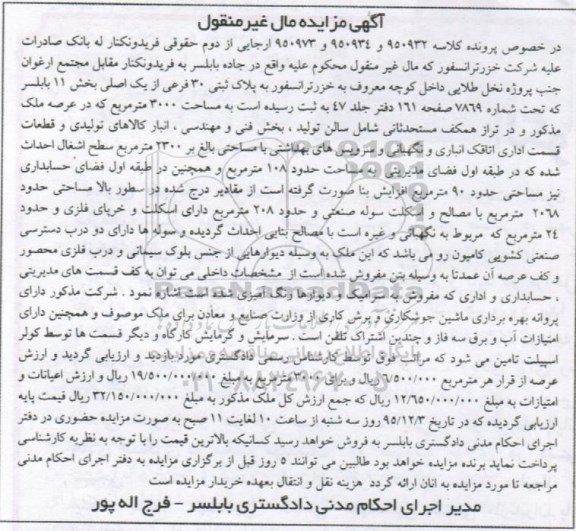 آگهی مزایده مال غیرمنقول
در خصوص پرونده کلاسه ۹۵۰۹۳۲ و ۹۵۰۹۳۴ و ۹۵۰۹۷۳ ارجایی از دوم حقوقی فریدونکنار له بانک صادرات
علیه شرکت خزرترانسفور که مال غیر منقول محکوم علیه واقع در جاده بابلسر به فریدونکنار مقابل مجتمع ارغوان
جنب پروژه نخل طلایی داخل کوچه معروف به خزرترانسفور به پلاک ثبتی ۳۰ فرعی از یک اصلی بخش ۱۱ بابلسر
که تحت شماره ۷۸۶۹ صفحه ۱۶۱ دفتر جلد ۴۷ به ثبت رسیده است به مساحت ۳۰۰۰ مترمربع که در عرصه ملک
مذکور و در تراز همکف مستحدثاتی شامل سالن تولید ، بخش فنی و مهندسی ، انبار کالاهای تولیدی و قطعات
قسمت اداری اتاقک انباری و نگهبانی و سرویس های بهداشتی با مساحتی بالغ بر ۲۳۰۰ مترمربع سطح اشغال احداث
شده که در طبقه اول فضای مدیریتی به مساحت حدود ۱۰۸ مترمربع و همچنین در طبقه اول فضای حسابداری
نیز مساحتی حدود ۹۰ مترمربع افزایش بنا صورت گرفته است از مقادیر درج شده در سطور بالا مساحتی حدود
۲۰۶۸ مترمربع با مصالح و اسکلت سوله صنعتی و حدود ۲۰۸ مترمربع دارای اسکلت و خرپای فلزی و حدود
۲۴ مترمربع که مربوط به نگهبانی و غیره است با مصالح بنایی احداث گردیده و سوله ها دارای دو درب دسترسی
صنعتی کشویی کامیون رو می باشد که این ملک به وسیله دیوارهایی از جنس بلوک سیمانی و درب فلزی محصور
و کف عرصه آن عمدتا به وسیله بتن مفروش شده است از مشخصات داخلی می توان به کف قسمت های مدیریتی
، حسابداری و اداری که مفروش به سرامیک و دیوارها رنگ آمیزی شده است اشاره نمود . شرکت مذکور دارای
پروانه بهره برداری ماشین جوشکاری و برش کاری از وزارت صنایع و معادن برای ملک موصوف و همچنین دارای
امتیازات آب و برق سه فاز و چندین اشتراک تلفن است . سرمایش و گرمایش کارگاه و دیگر قسمت ها توسط کولر
اسپیلت تامین می شود که مراتب فوق توسط کارشناس رسمی دادگستری مورد بازدید و ارزیابی گردید و ارزش
عرصه از قرار هر مترمربع ۶/۵۰۰/۰۰۰ ریال و برای ۳۰۰۰ مترمربع به مبلغ ۱۹/۵۰۰/۰۰۰/۰۰۰ ریال و ارزش اعیانات و
امتیازات به مبلغ ۱۲/۶۵۰/۰۰۰/۰۰۰ ریال که جمع ارزش کل ملک مذکور به مبلغ ۳۲/۱۵۰/۰۰۰/۰۰۰ ریال قیمت پایه
ارزیابی گردیده که در تاریخ ۹۵/۱۲/۳ روز سه شنبه از ساعت ۱۰ لغایت ۱۱ صبح به صورت مزایده حضوری در دفتر
اجرای احکام مدنی دادگستری بابلسر به فروش خواهد رسید کسانیکه بالاترین قیمت را با توجه به نظریه کارشناسی
پرداخت نماید برنده مزایده خواهد بود طالبین می توانند ۵ روز قبل از برگزاری مزایده به دفتر اجرای احکام مدنی
مراجعه تا مورد مزایده به انان ارائه گردد هزینه نقل و انتقال بعهده خریدار مزایده است
مدیر اجرای احکام مدنی دادگستری بابلسر - فرج اله پور
ParsNamadData